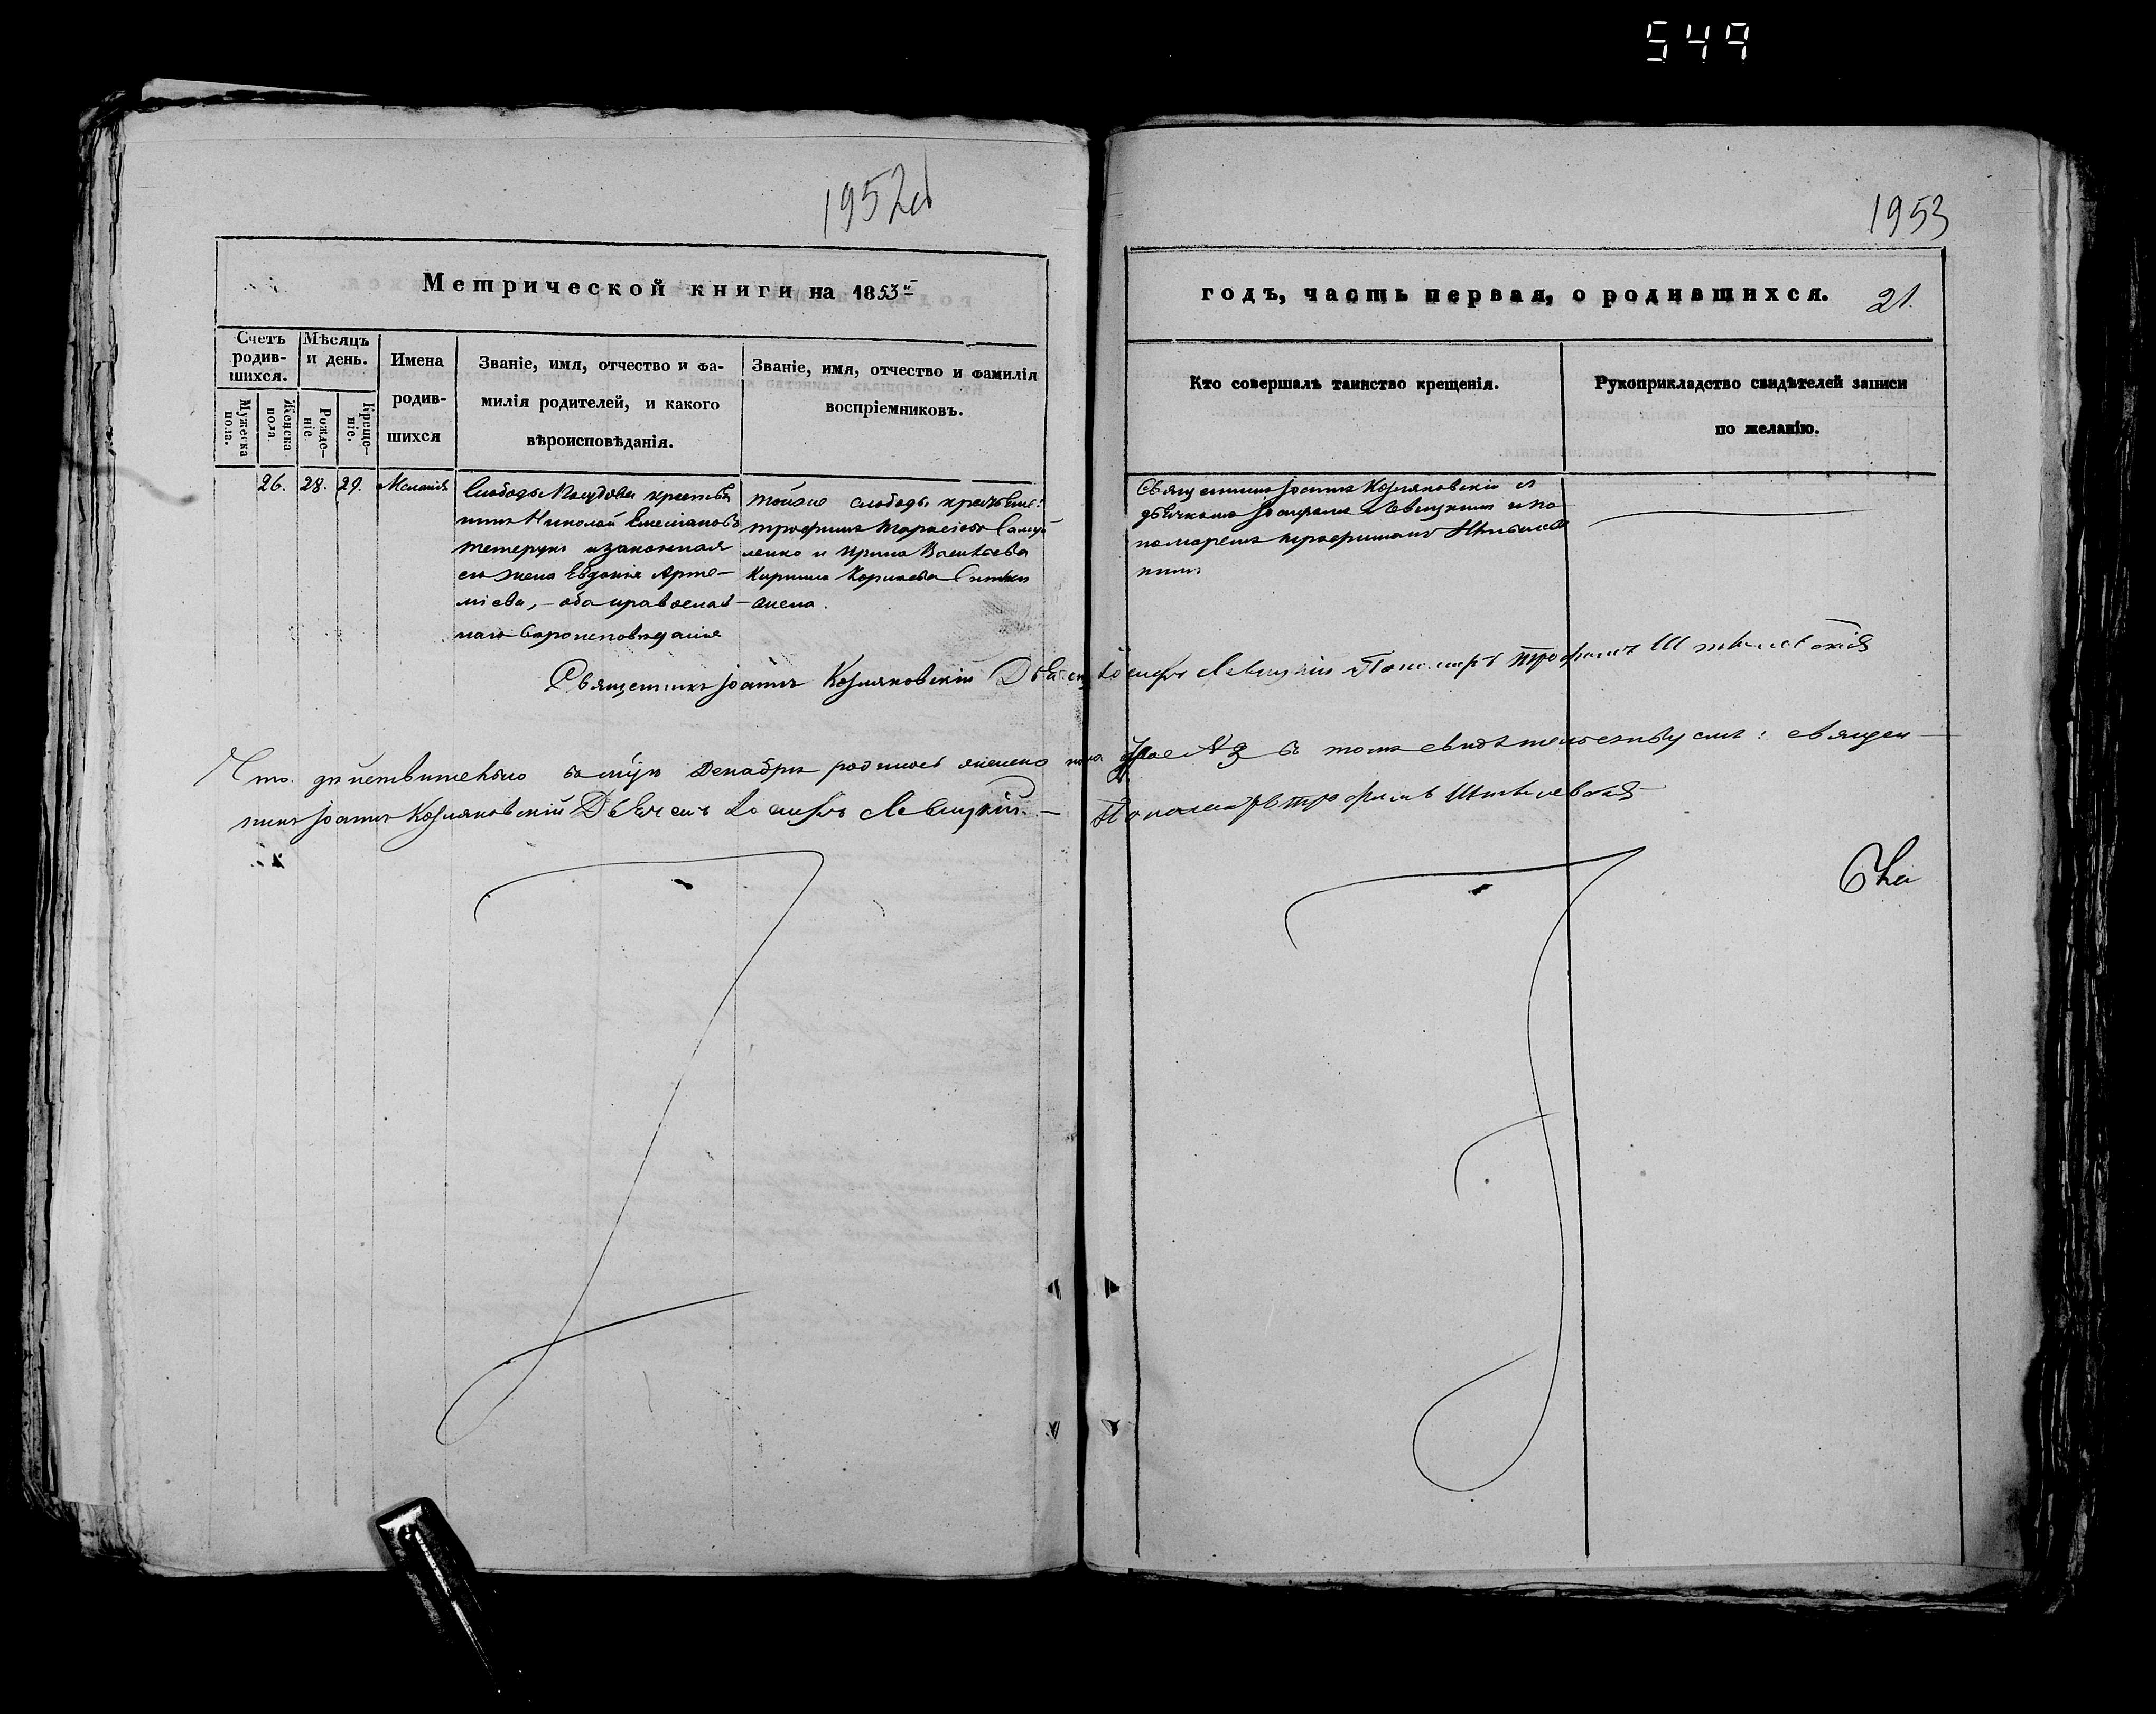 549
1952об
1953
Метрической книги на 1853й
годъ, часть первая, о родившихся. 21.
Счетъ родив-шихся.
Мужеска пола.
Женска пола.
Мѣсяцъ и день.
Рожде-ніе.
Креще-ніе.
Имена
родив-
шихся
Званіе, имя, отчество и фа-
милія родителей, и какого
вѣроисповѣданія.
Званіе, имя, отчество и фамилія
воспріемниковъ.
Кто совершалъ таинство крещенія.
Рукоприкладство свидѣтелей записи
по желанію.
26. 28. 29. Меланія
Слободы крестья
нинъ Николай Емелiановъ
Тетерукъ и законная
его жена Евдокія Арте-
міева, - оба православ-
наго вѣроисповѣданія
тойже слободы крестьяне:
Трофимъ Тарасіевъ Самуй
ленко и Ирина Васильева
Кирила жена.
Священникъ Іоаннъ Козляковскій съ
дьячкомъ Іосифомъ Левицкимъ и по
номаремъ Трофимомъ
Священникъ Іоаннъ Козляковскій Дьячекъ Іосифъ Левицкій Пономарь Трофимъ
Что дѣйствительно въ м-цѣ Декабрѣ родилось женска пола двое № 2 въ томъ свидѣтельствуемъ: священ-
никъ Іоаннъ Козляковскій Дьячекъ Іосифъ Левицкій. - Пономарь Трофимъ